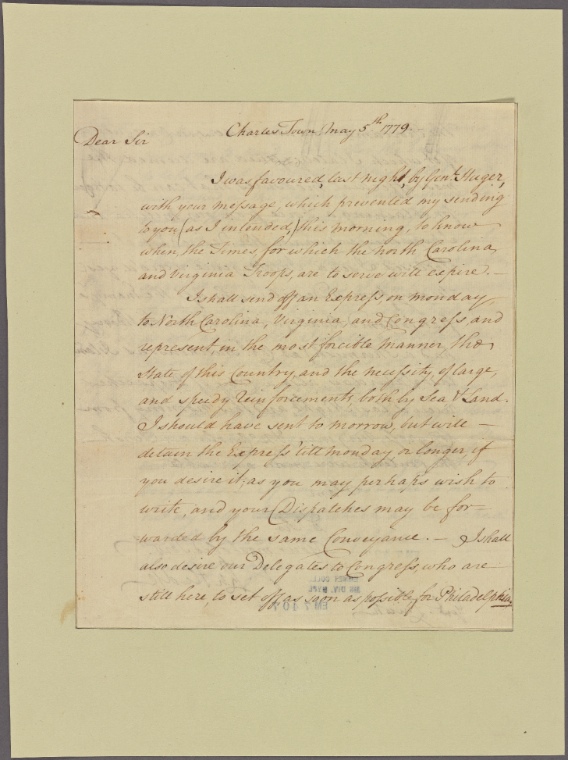 Charles Town, May 5th 1779
Dear Sir
I was favoured, last night, by Genl. Huger,
with your message, which prevented my sending
to you (as I intended) this morning, to know
when the Times for which the North Carolina
and Virginia Troops, are to serve will expire.—
I shall send off an Express on monday,
to North Carolina, Virginia, and Congress and
represent, in the most forcible manner, the
State of this Country, and the necessity of large,
and speedy Reinforcements, both by Sea & Land.
I should have sent to morrow, but will —
detain the Express 'till monday, or longer, if
you desire it, as you may perhaps wish to
write, and your Dispatches may be for—
warded by the same Conveyance.— I shall
also desire our Delegates to Congress, who are—
still here, to set off as soon as possible for Philadelphia